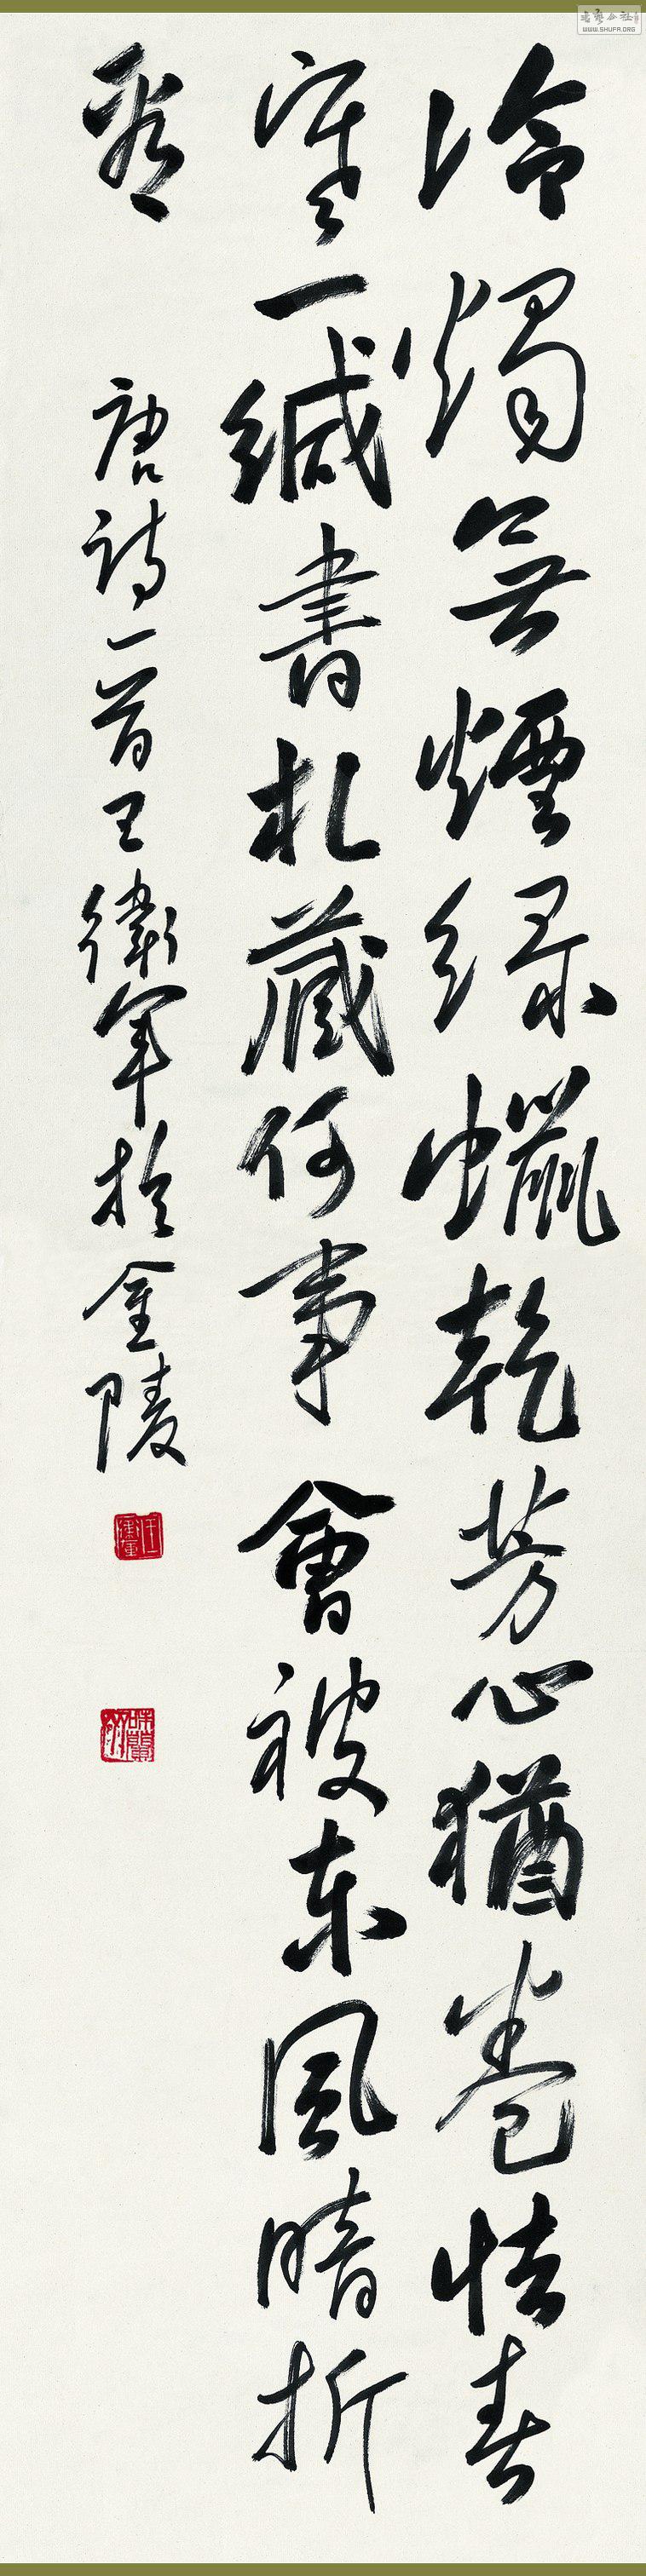 冷燭無煙緑蠟乾芳心猶卷怯春
寒一緘書札藏何事會被東風暗折
看
唐詩一首王衛軍於金陵
王衛軍
WWW.SHUFA.ORG